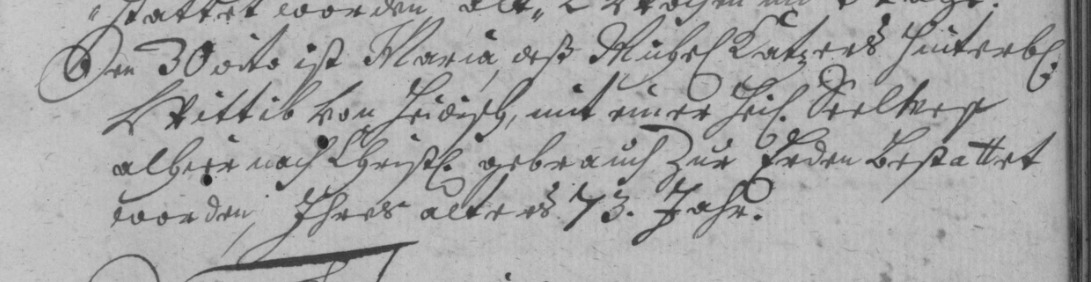 stattet worden, alt
Den 30 dito ist Maria, deß Michel Katzers hinterl:
Wittib von Heidisch, mit einer Heil. Seelmeß
alhier nach Christl. gebrauch Zur Erden Bestattet
worden, Ihres alters 73. Jahr.